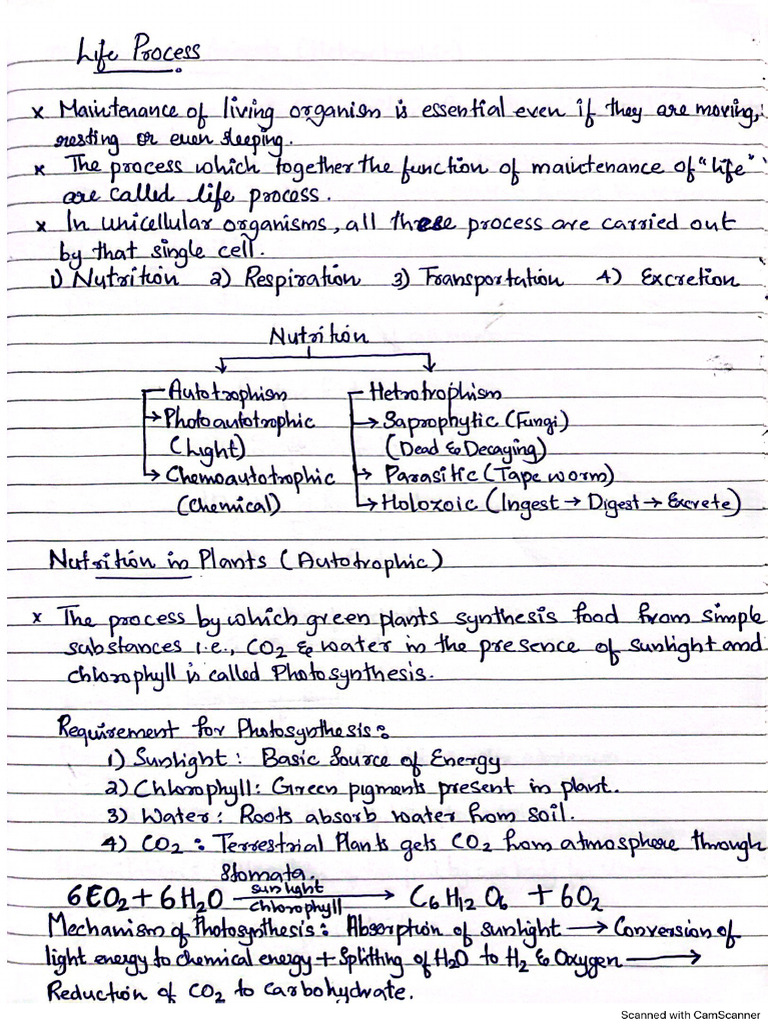 Life Process
x Maintenance of living organism is essential even if they are moving,
resting or even sleeping.
x The process which together the function of maintenance of "life"
are called life process.
x In unicellular organisms, all these process are carried out
by that single cell.
1) Nutrition 2) Respiration 3) Transportation 4) Excretion
Nutrition
Autotrophism Hetrotrophism
→ Photoautotrophic → Saprophytic (Fungi)
(Light) (Dead & Decaying)
→ Chemoautotrophic → Parasitic (Tape worm)
(Chemical) → Holozoic (Ingest → Digest → Excrete)
Nutrition in Plants (Autotrophic)
x The process by which green plants synthesis food from simple
substances i.e., CO2 & water in the presence of sunlight and
chlorophyll is called Photosynthesis.
Requirement for Photosynthesis:
1) Sunlight : Basic Source of Energy
2) Chlorophyll: Green pigments present in plant.
3) Water : Roots absorb water from soil.
4) CO2 : Terrestrial Plants gets CO2 from atmosphere through
Stomata.
6CO2 + 6H2O sunlight → chlorophyll C6H12O6 + 6O2
Mechanism of Photosynthesis: Absorption of sunlight → Conversion of
light energy to chemical energy + Splitting of H2O to H2 & Oxygen →
Reduction of CO2 to carbohydrate.
Scanned with CamScanner